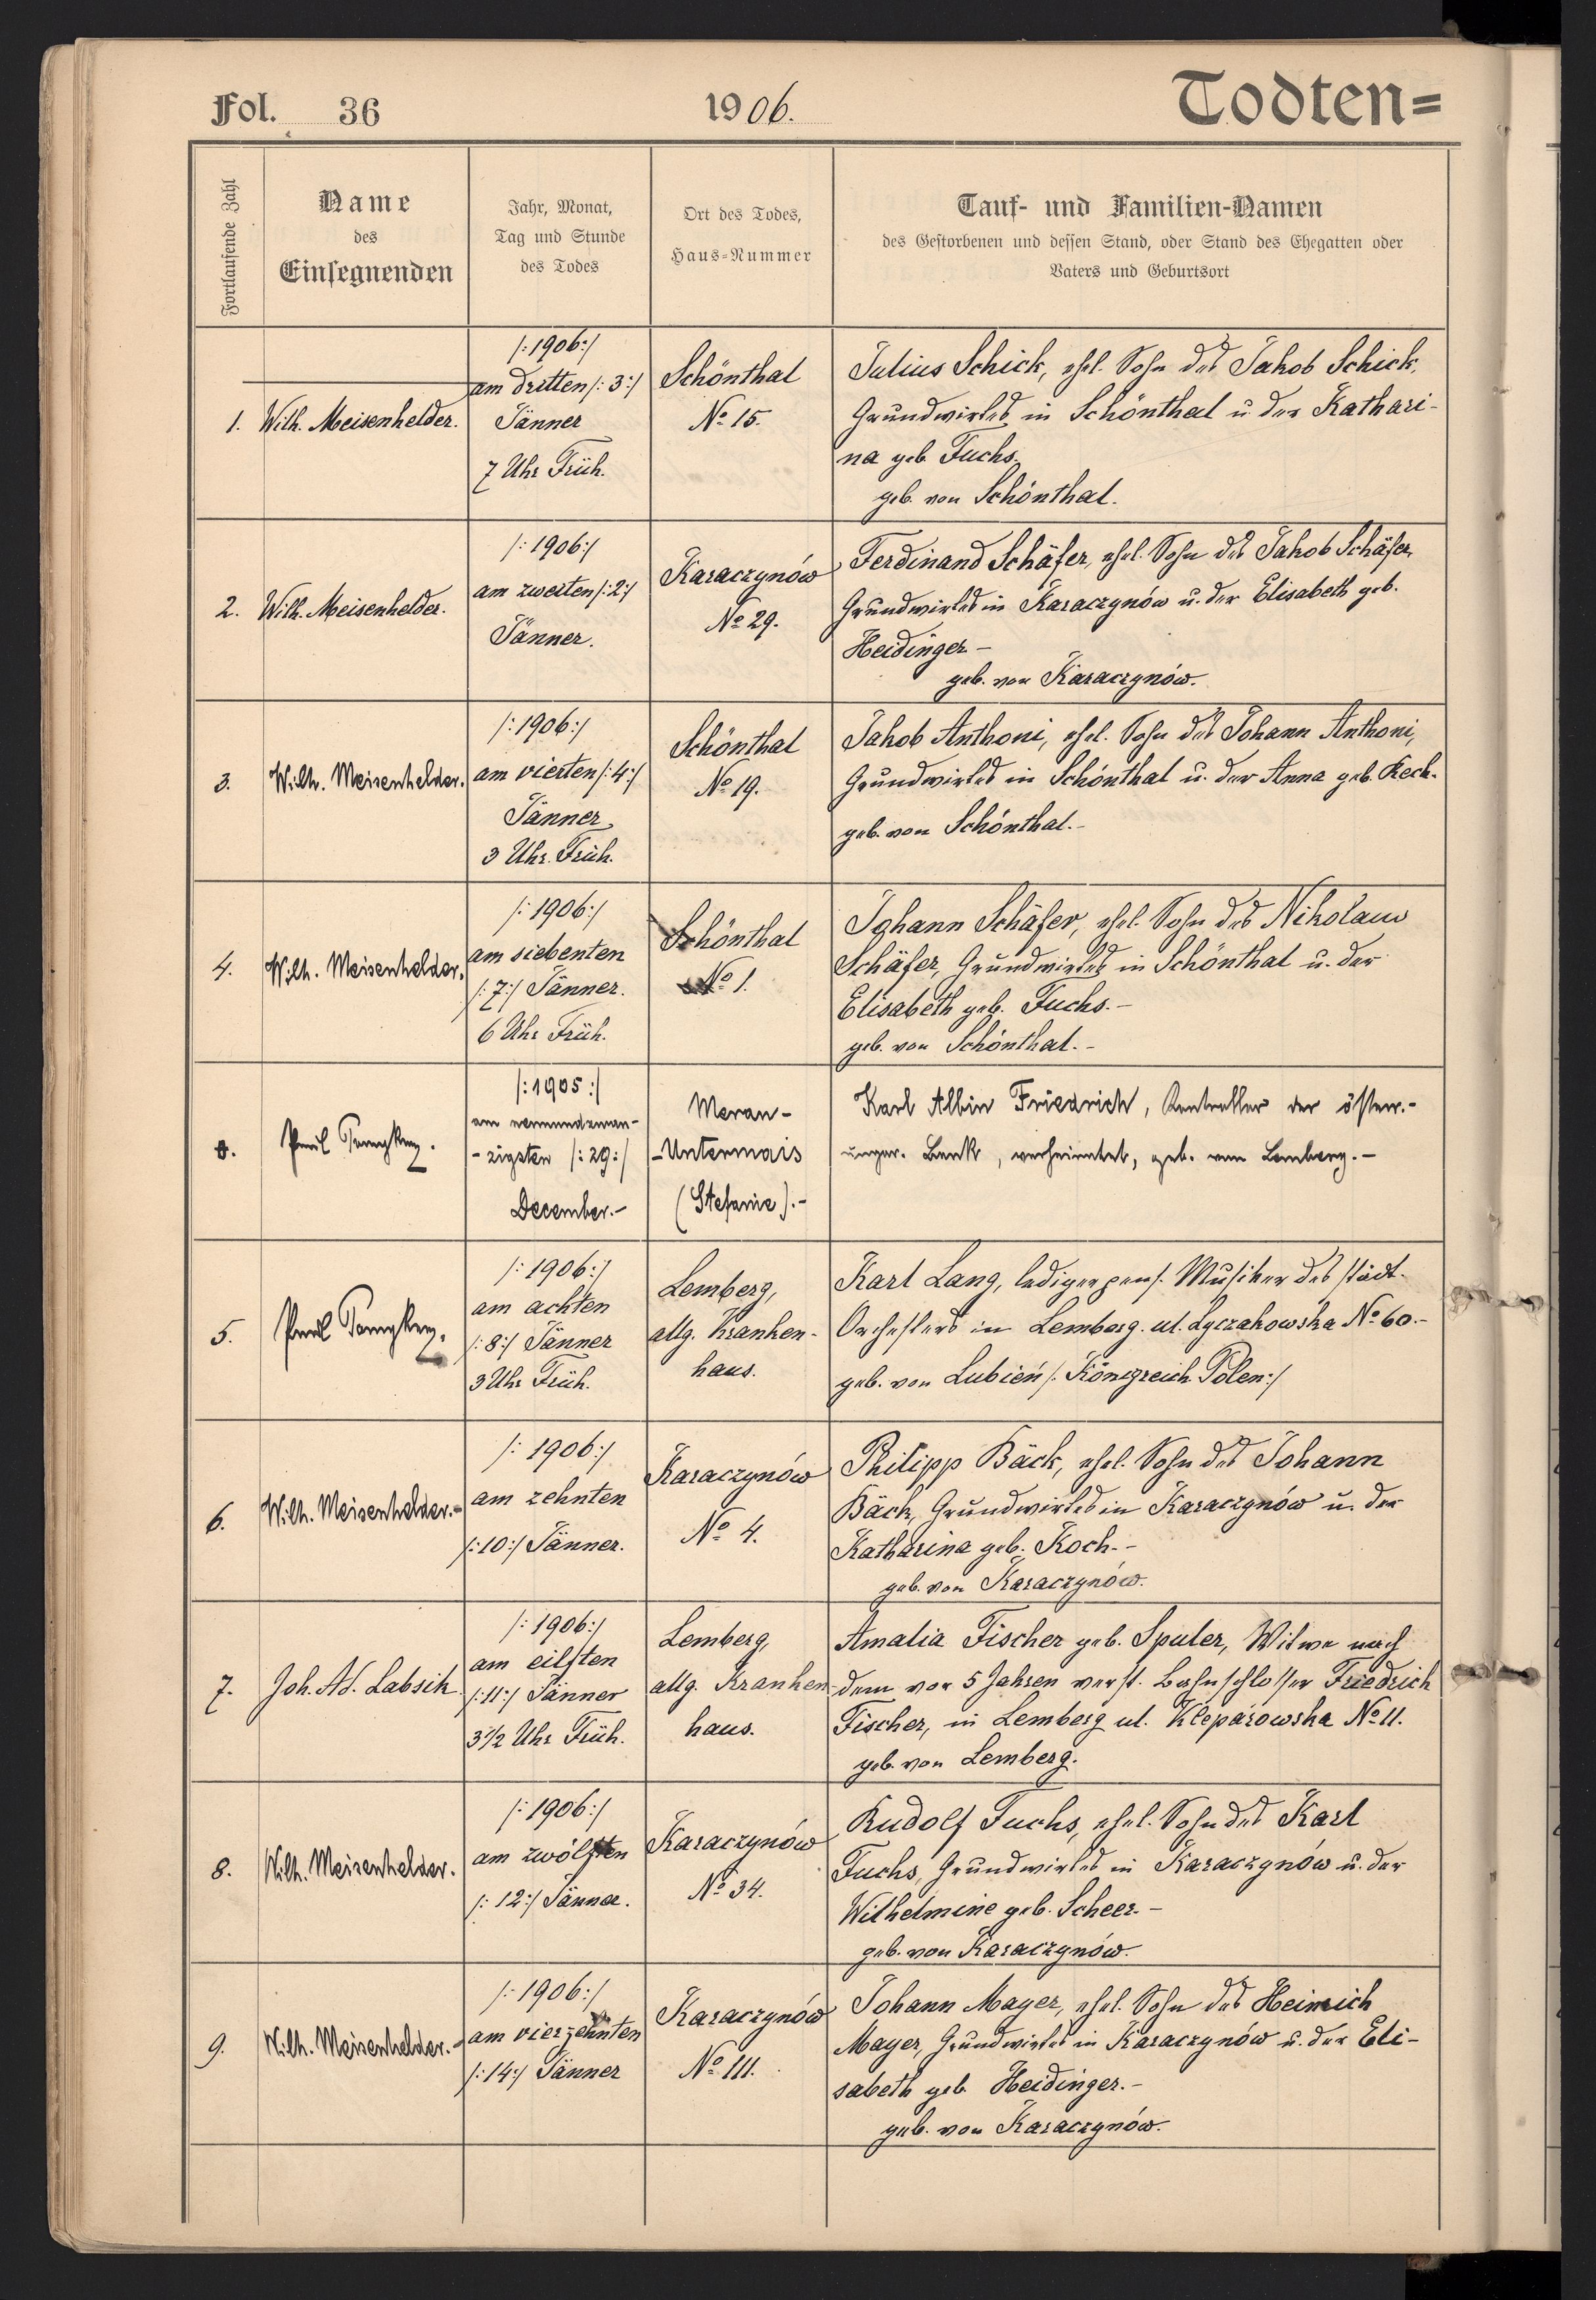 Fol. 36
1906.
Todten=
Fortlaufende Zahl
Name
des
Einsegnenden
Jahr, Monat,
Tag und Stunde
des Todes
Ort des Todes,
Haus-Nummer
Tauf- und Familien-Namen
des Gestorbenen und dessen Stand, oder Stand des Ehegatten oder
Vaters und Geburtsort
1.
Wilh. Meisenhelder.
/:1906:/
am dritten /:3:/
Jänner
7 Uhr Früh.
Schönthal
No 15.
Julius Schick, ehel. Sohn des Jakob Schick,
Grundwirtes in Schönthal u. der Kathari-
na geb. Fuchs.
geb. von Schönthal.
2.
Wilh. Meisenhelder.
/:1906:/
am zweiten /:2:/
Jänner.
Karaczynów
No 29.
Ferdinand Schäfer, ehel. Sohn des Jakob Schäfer,
Grundwirtes in Karaczynów u. der Elisabeth geb.
Heidinger -
geb. von Karaczynów.
3.
Wilh. Meisenhelder.
/:1906:/
am vierten /:4:/
Jänner
3 Uhr Früh.
Schönthal
No 19.
Jakob Anthoni, ehel. Sohn des Johann Anthoni,
Grundwirtes in Schönthal u. der Anna geb. Keck.
geb. von Schönthal. -
4.
Wilh. Meisenhelder.
/:1906:/
am siebenten
/:7:/ Jänner.
6 Uhr Früh.
Schönthal
No 1.
Johann Schäfer, ehel. Sohn des Nikolaus
Schäfer, Grundwirtes in Schönthal u. der
Elisabeth geb. Fuchs. -
geb. von Schönthal. -
/:1905:/
am neunundzwan-
-zigsten /:29:/
December.-
Meran-
-Untermais
(Stefanie).-
Karl Albin Friedrich, Kontrollor der österr.-
ungar. Bank, verheiratet, geb. von Lemberg. -
5.
/:1906:/
am achten
/:8:/ Jänner
3 Uhr Früh.
Lemberg,
allg. Kranken-
haus.
Karl Lang, lediger pens. Musiker des städt.
Orchesters in Lemberg. ul. Łyczakowska No 60.-
geb. von Lubień /: Königreich Polen:/
6.
Wilh. Meisenhelder.-
/:1906:/
am zehnten
/:10:/ Jänner.
Karaczynów
No 4.
Philipp Bäck, ehel. Sohn des Johann
Bäck, Grundwirtes in Karaczynów u. der
Katharina geb. Koch. -
geb. von Karaczynów.
7.
Joh. Ad. Labsik
/:1906:/
am eilften
/:11:/ Jänner
3 1/2 Uhr Früh.
Lemberg,
allg. Kranken-
haus.
Amalia Fischer geb. Spuler, Witwe nach
dem vor 5 Jahren verst. Bahnschlosser Friedrich
Fischer, in Lemberg ul. Kleparowska No 11.
geb. von Lemberg.
8.
Wilh. Meisenhelder.
/:1906:/
am zwölften
/:12:/ Jänner.
Karaczynów
No 34.
Rudolf Fuchs, ehel. Sohn des Karl
Fuchs, Grundwirtes in Karaczynów u. der
Wilhelmine geb. Scheer. -
geb. von Karaczynów.
9.
Wilh. Meisenhelder.-
/:1906:/
am vierzehnten
/:14:/ Jänner
Karaczynów
No 111.
Johann Mayer, ehel. Sohn des Heinrich
Mayer, Grundwirtes in Karaczynów u. der Eli-
sabeth geb. Heidinger. -
geb. von Karaczynów.